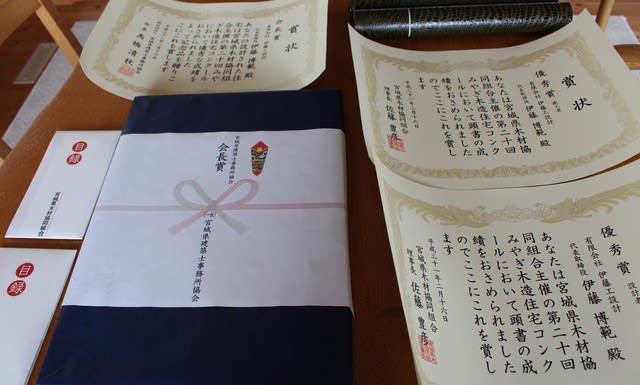 賞状
会長賞
伊藤博範殿
あなたの設計された住
宅は宮城県木材協同組
合主催の第二十回みや
ぎ木造住宅コンクール
において優秀な成績を
おさめられました
よって記念品を贈りこ
こにこれを賞します
会長 高橋清秋
賞状
優秀賞 施工業
有限会社 伊藤工設計
代表取締役 伊藤 博範 殿
あなたは宮城県木材協
同組合主催の第二十回
みやぎ木造住宅コンク
ールにおいて頭書の成
績をおさめられました
のでここにこれを賞し
ます
宮城県木材協同組合
理事長 佐藤 豊彦
優秀賞 設計
有限会社 伊藤工設計
代表取締役 伊藤 博範 殿
あなたは宮城県木材協
同組合主催の第二十回
みやぎ木造住宅コンク
ールにおいて頭書の成
績をおさめられました
のでここにこれを賞し
ます
平成三十一年二月十六日
宮城県木材協同組合
理事長 佐藤 豊彦
宮城県建築士事務所協会
会長賞
(一社)宮城県建築士事務所協会
目録
宮城県木材協同組合
目録